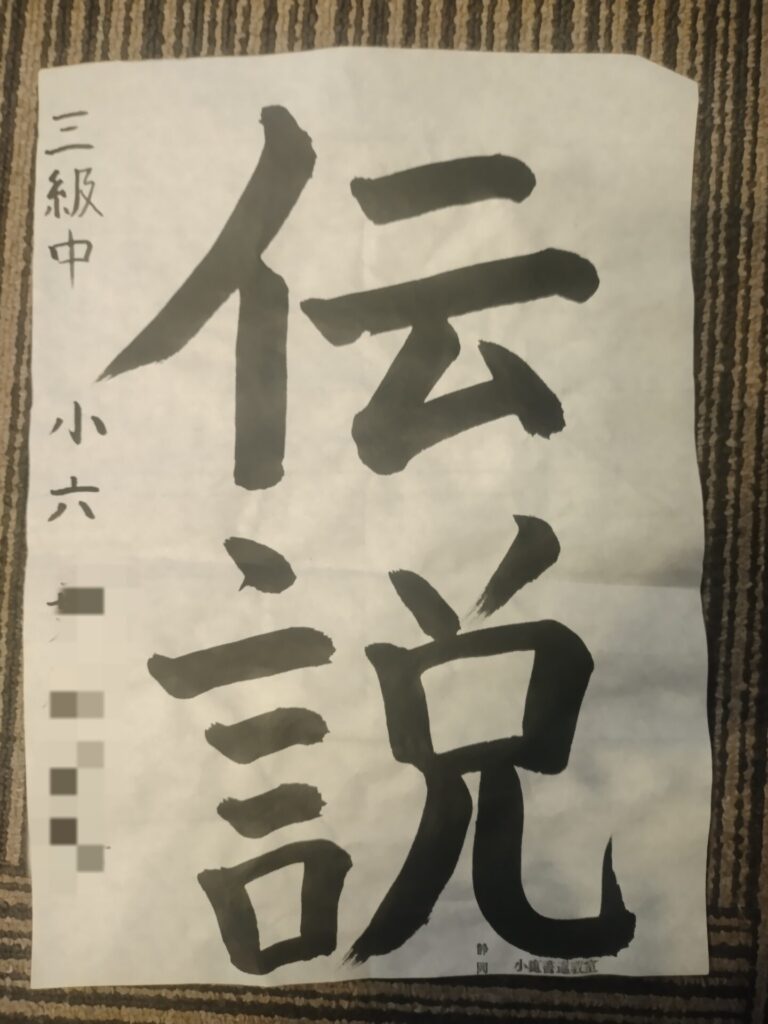 伝説
三級中 小六
静岡 書道教室